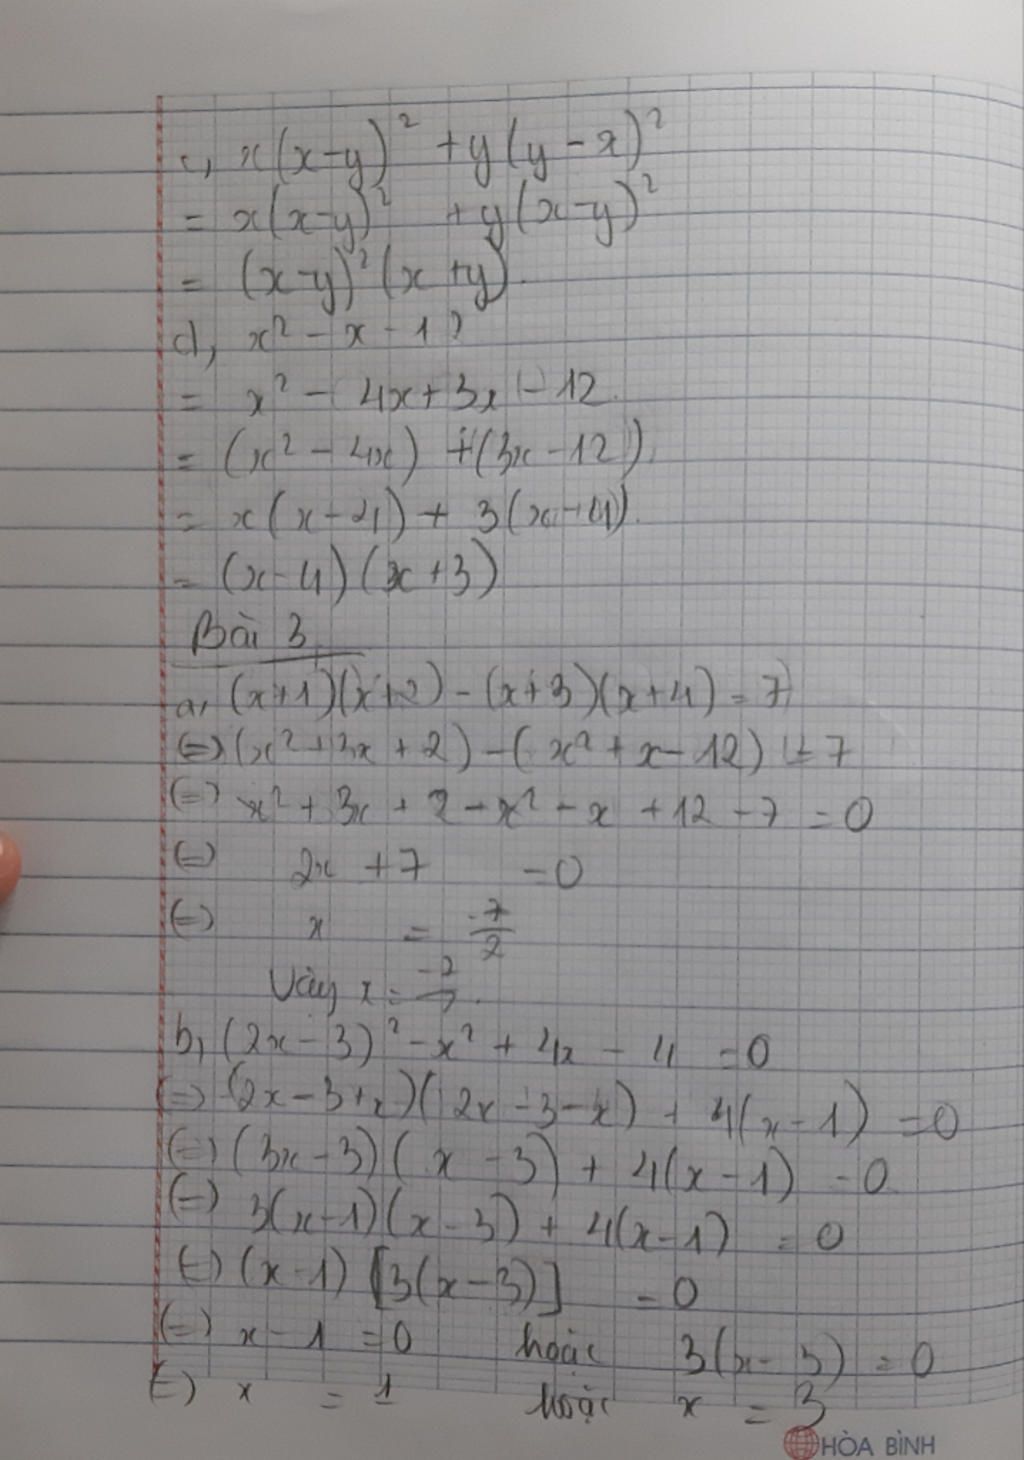 c, x(x-y)² + y(y-x)²
= x(x-y)² + y(x-y)²
= (x-y)²(x+y).
d, x² - x - 12
= x² - 4x + 3x - 12.
= (x² - 4x) + (3x - 12).
= x(x-4) + 3(x-4).
= (x-4)(x+3)
Bài 3
a, (x+1)(x+2) - (x+3)(x+4) = 7
(=) (x² + 3x + 2) - (x² + x - 12) = 7
(=) x² + 3x + 2 - x² - x + 12 - 7 = 0
(=) 2x + 7 = 0
(=) x = -7/2
Vậy x = -2/7.
b, (2x-3)² - x² + 4x - 4 = 0
(=) (2x-3+x)(2x-3-x) + 4(x-1) = 0
(=) (3x-3)(x-3) + 4(x-1) = 0
(=) 3(x-1)(x-3) + 4(x-1) = 0
(=) (x-1) [3(x-3)] = 0
(=) x-1 = 0 hoặc 3(x-3) = 0
(=) x = 1 hoặc x = 3
HÒA BÌNH